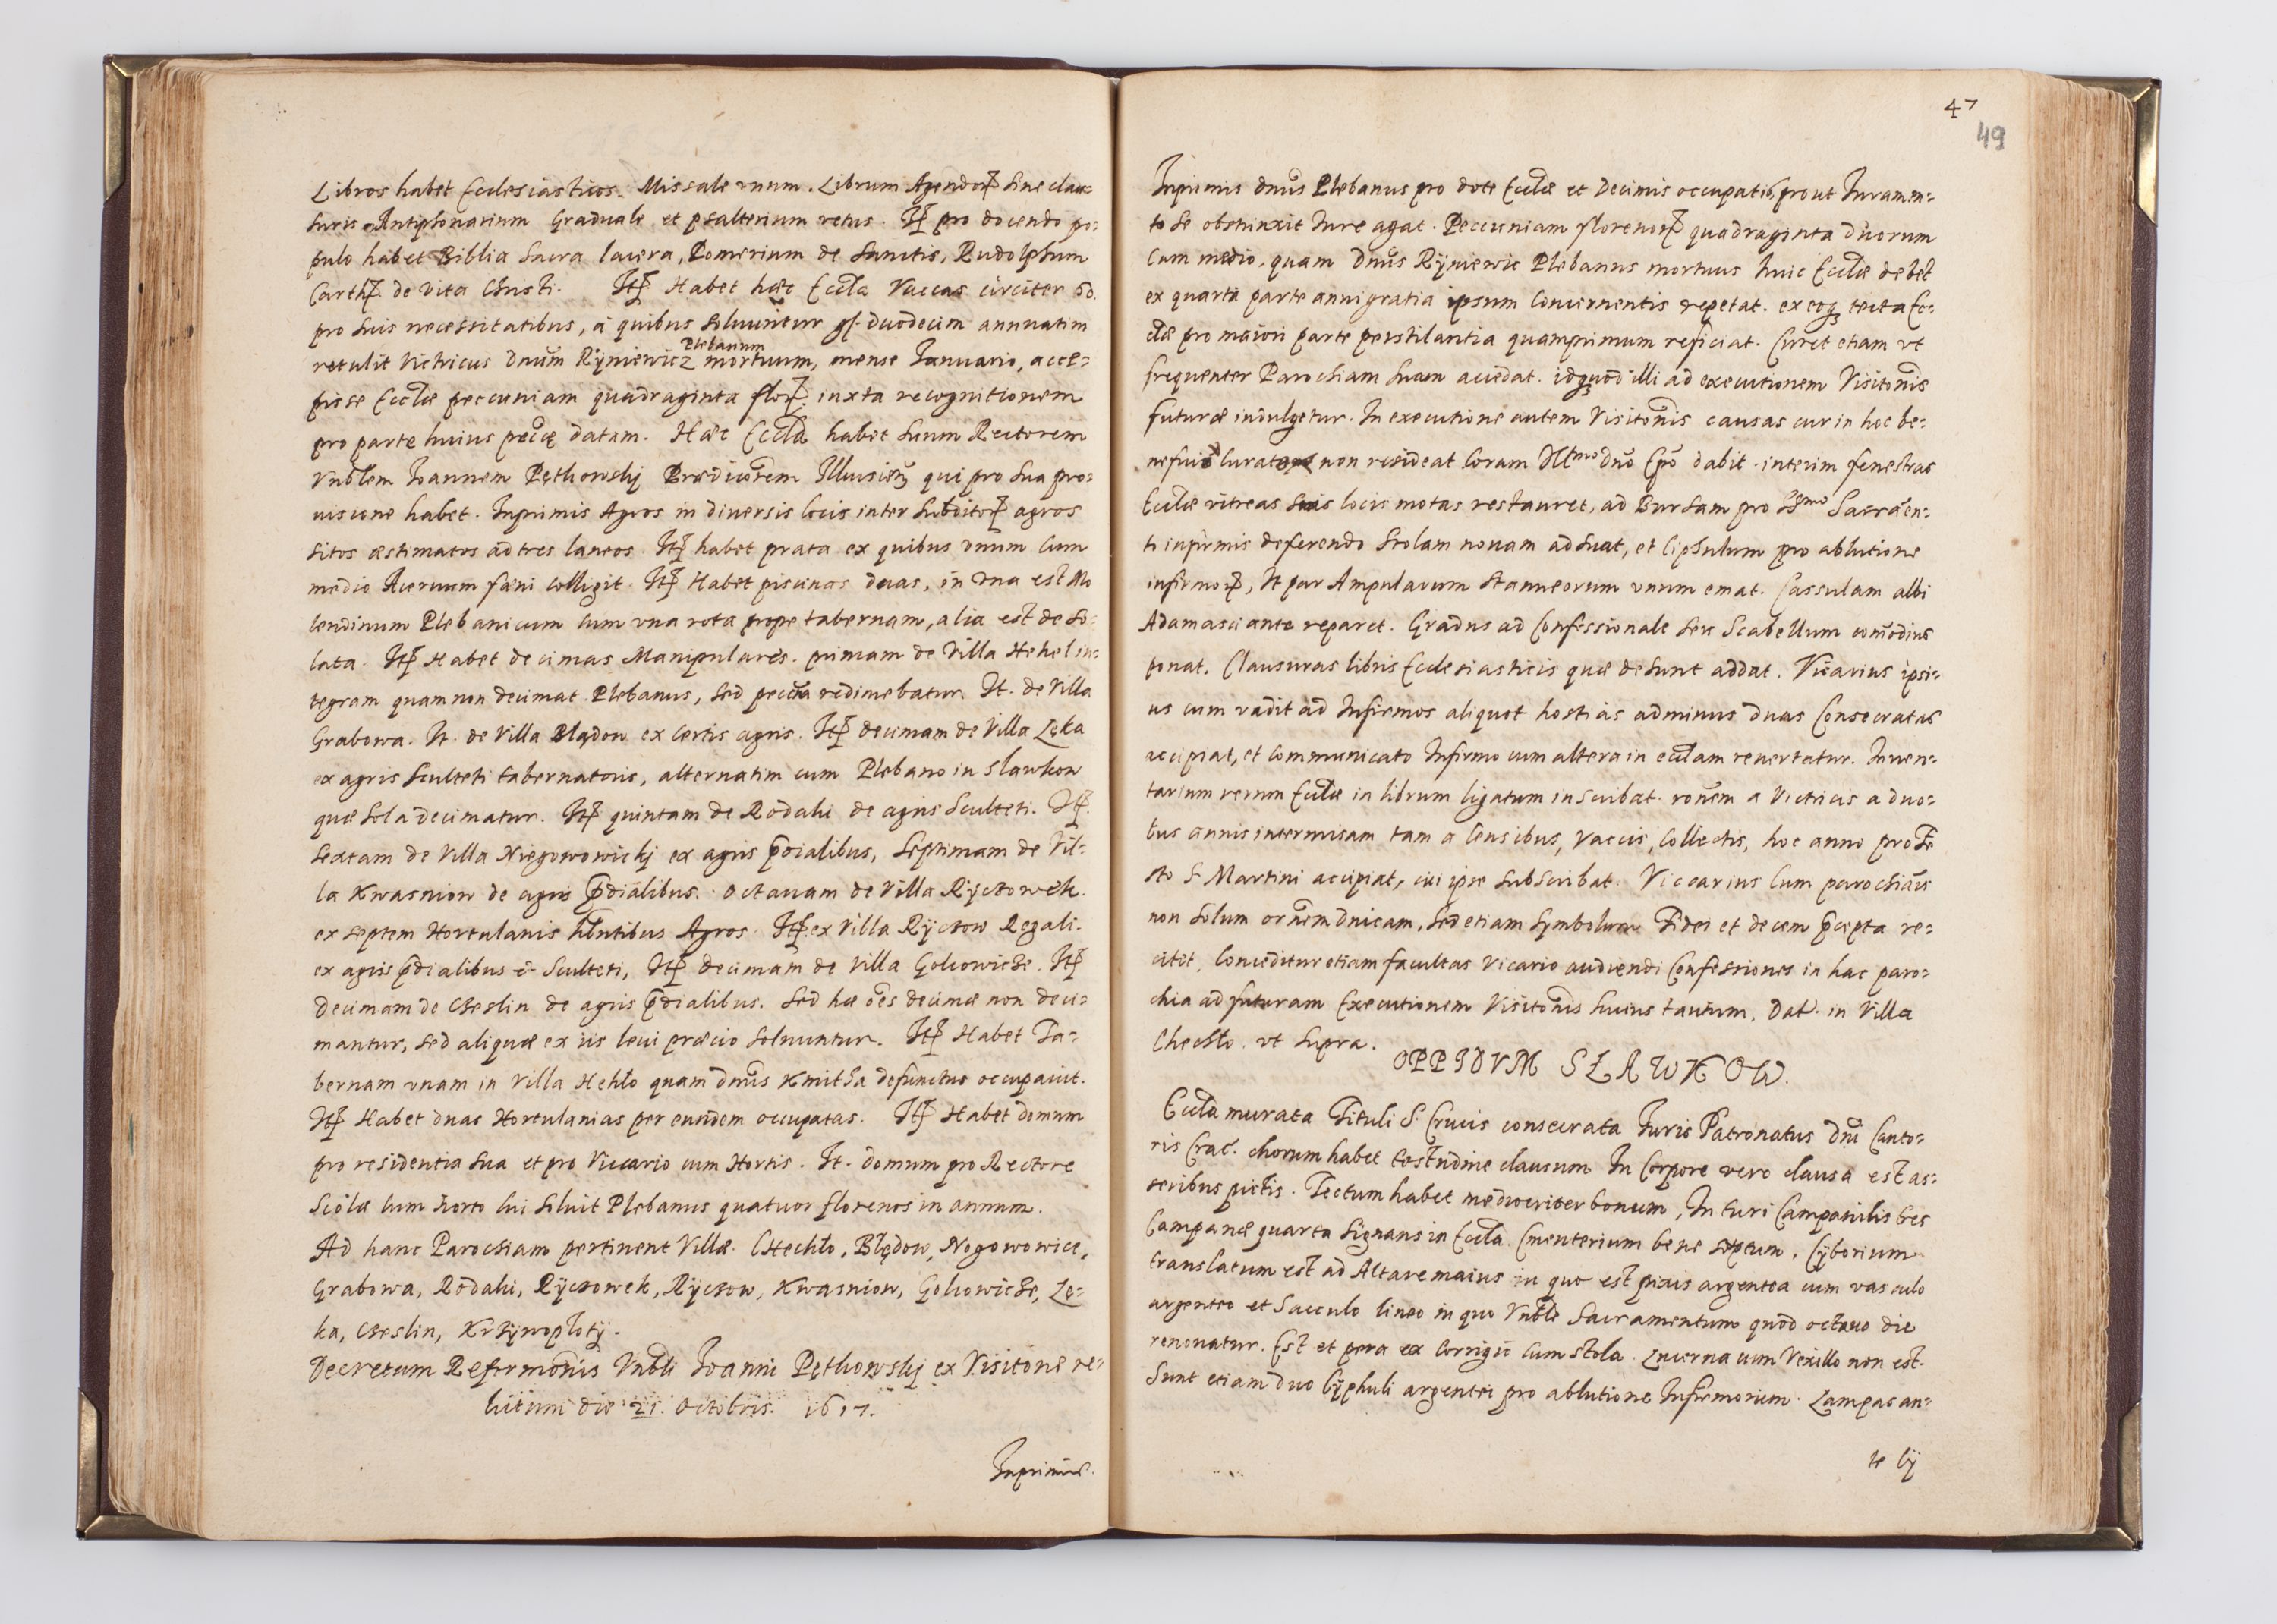 Libros habet Ecclesiasticos. Missale vnum. Librum Agendorꝝ sine clau-
suris Antiphonarium Graduale et psalterium vetus. Itꝝ pro docendo po-
pulo habet Biblia Sacra lacera, Pomerium de Sanctis, Rudolphum
Carthꝝ de vita Christi. Itꝝ Habet hæc Eccla Vaccas circiter 50.
pro suis necessitatibus, à quibus soluuntur gs. duodecim annuatim
retulit Victricus dnum Ryniewicz Plebanum mortuum, mense Ianuario, acce-
pisse Ecclæ peccuniam quadraginta florꝝ. iuxta recognitionem
pro parte huius pecciæ datam. Hæc Eccla habet suum Rectorem
Vnblem Ioannem Pęthowskj Prædicatorem qui pro sua pro-
uisione habet. Inprimis Agros in diuersis locis inter subditorꝝ agros
sitos æstimatos ad tres laneos. Itꝝ habet prata ex quibus vnum cum
medio Aceruum fæni colligit. Itꝝ Habet piscinas duas, in vna est Mo
lendinum Plebanicum cum vna rota prope tabernam, alia est deso-
lata. Itꝝ Habet decimas Manipulares. primam de Villa Hehel in-
tegram quam non decimat Plebanus, sed peccia redimebatur. It. de Villa
Grabowa. It. de Villa Blędow ex certis agris. Itꝝ decimam de Villa Lęka
ex agris Sculteti tabernatoris, alternatim cum Plebano in Slawkow
quæ sola decimatur. Itꝝ quintam de Rodaki de agris Sculteti. Itꝝ.
sextam de Villa Niegowowickj ex agris p̄dialibus, septimam de Vil-
la Kwasniow de agris p̄dialibus. octauam de Villa Ryczowek.
ex septem Hortulanis hn̄tibus Agros. Itꝝ ex Villa Ryczow Regali.
ex agris p̄dialibus et Sculteti, Itꝝ decimam de Villa Golcowicze. Itꝝ
decimam de Czeslin de agris p̄dialibus. Sed hæ oēs decimæ non deci-
mantur, sed aliquæ ex iis leui præcio soluuntur. Itꝝ Habet Ta-
bernam vnam in Villa Hehło quam dnus Kmitha defunctus occupauit.
Itꝝ Habet duas Hortulanias per eundem occupatas. Itꝝ Habet domum
pro residentia sua et pro Viccario cum Hortis. It. domum pro Rectore
Scolæ cum horto cui soluit Plebanus quatuor florenos in annum.
Ad hanc Parochiam pertinent Villæ. CHechło, Blędow, Nogowowice,
Grabowa, Rodaki, Ryczowek, Ryczow, Kwasniow, Golcowicze, Lę-
ka, Czeslin, Krzywopłoty.
Decretum Reformōnis Vnbli Ioanni Pęthowskj ex Visitōne re-
lictum die 21. Octobris. 1617.
Inprimis.
47
49
Inprimis dnus Plebanus pro dote Ecclæ et Decimis occupatis, prout Iuramen-
to se obstrinxit Iure agat. Peccuniam florenorꝝ quadraginta duorum
cum medio, quam Dnus Ryniewic Plebanus mortuus huic Ecclæ debet
ex quarta parte anni gratiæ ipsum concernentis repetat. ex eoqꝫ tecta Ec-
clæ pro maiori parte perstilantia quamprimum reficiat. Curet etiam vt
frequenter Parochiam suam accedat. idqꝫ quod illi ad executionem Visitōnis
futuræ indulgetur. In executione autem Visitōnis causas cur in hoc be-
neficio curato non resideat coram Illmo dno Epō dabit. interim fenestras
Ecclæ vitreas suis locis motas restauret, ad Bursam pro SSmo Sacramen-
to infirmis deferendo Stolam nouam adsuat, et Ciphulum pro ablutione
infirmorꝝ, It par Ampularum stanneorum vnum emat. Cassulam albi
Adamasci ante reparet. Gradus ad Confessionale seu Scabellum comodius
ponat. Clausuras libris Ecclesiasticis quæ desunt addat. Vicarius ipsi-
us cum vadit ad Infirmos aliquot hostias adminus duas Consecratas
accipiat, et communicato Infirmo cum altera in ecclam reuertatur. Inuen-
tarium rerum Ecclæ in librum ligatum inscribat. ronem a Victricis a duo-
bus annis intermisam tam a Censibus, Vaccis, Collectis, hoc anno pro Fe
sto S. Martini accipiat, cui ipse subscribat. Viccarius cum parochianis
non solum oronem dnicam, sed etiam Symbolum Fidei et decem p̄cepta re-
citet. Conceditur etiam facultas Vicario audiendi Confessiones in hac paro-
chia ad futuram Executionem Visitōnis huius tantum. Dat. in Villa
Chechło. vt supra.
OPPIDVM SŁAWKOW.
Eccla murata Tituli S. Crucis consecrata Iuris Patronatus Dni Canto-
ris Crac. chorum habet testudine clausum In Corpore vero clausa est as-
seribus pictis. Tectum habet mediocriter bonum, In turi Campanilis tres
Campanæ quarta signans in Eccla. Cmenterium bene septum. Cyborium
translatum est ad Altare maius in quo est pixis argentea cum vasculo
argenteo et Sacculo lineo in quo Vnble Sacramentum quod octauo die
renouatur. Est et pera ex Corrigiis cum stola. Lucerna cum Vexillo non est.
Sunt etiam duo Cyphuli argentei pro ablutione Infirmorum. Lampas an-
te Cy